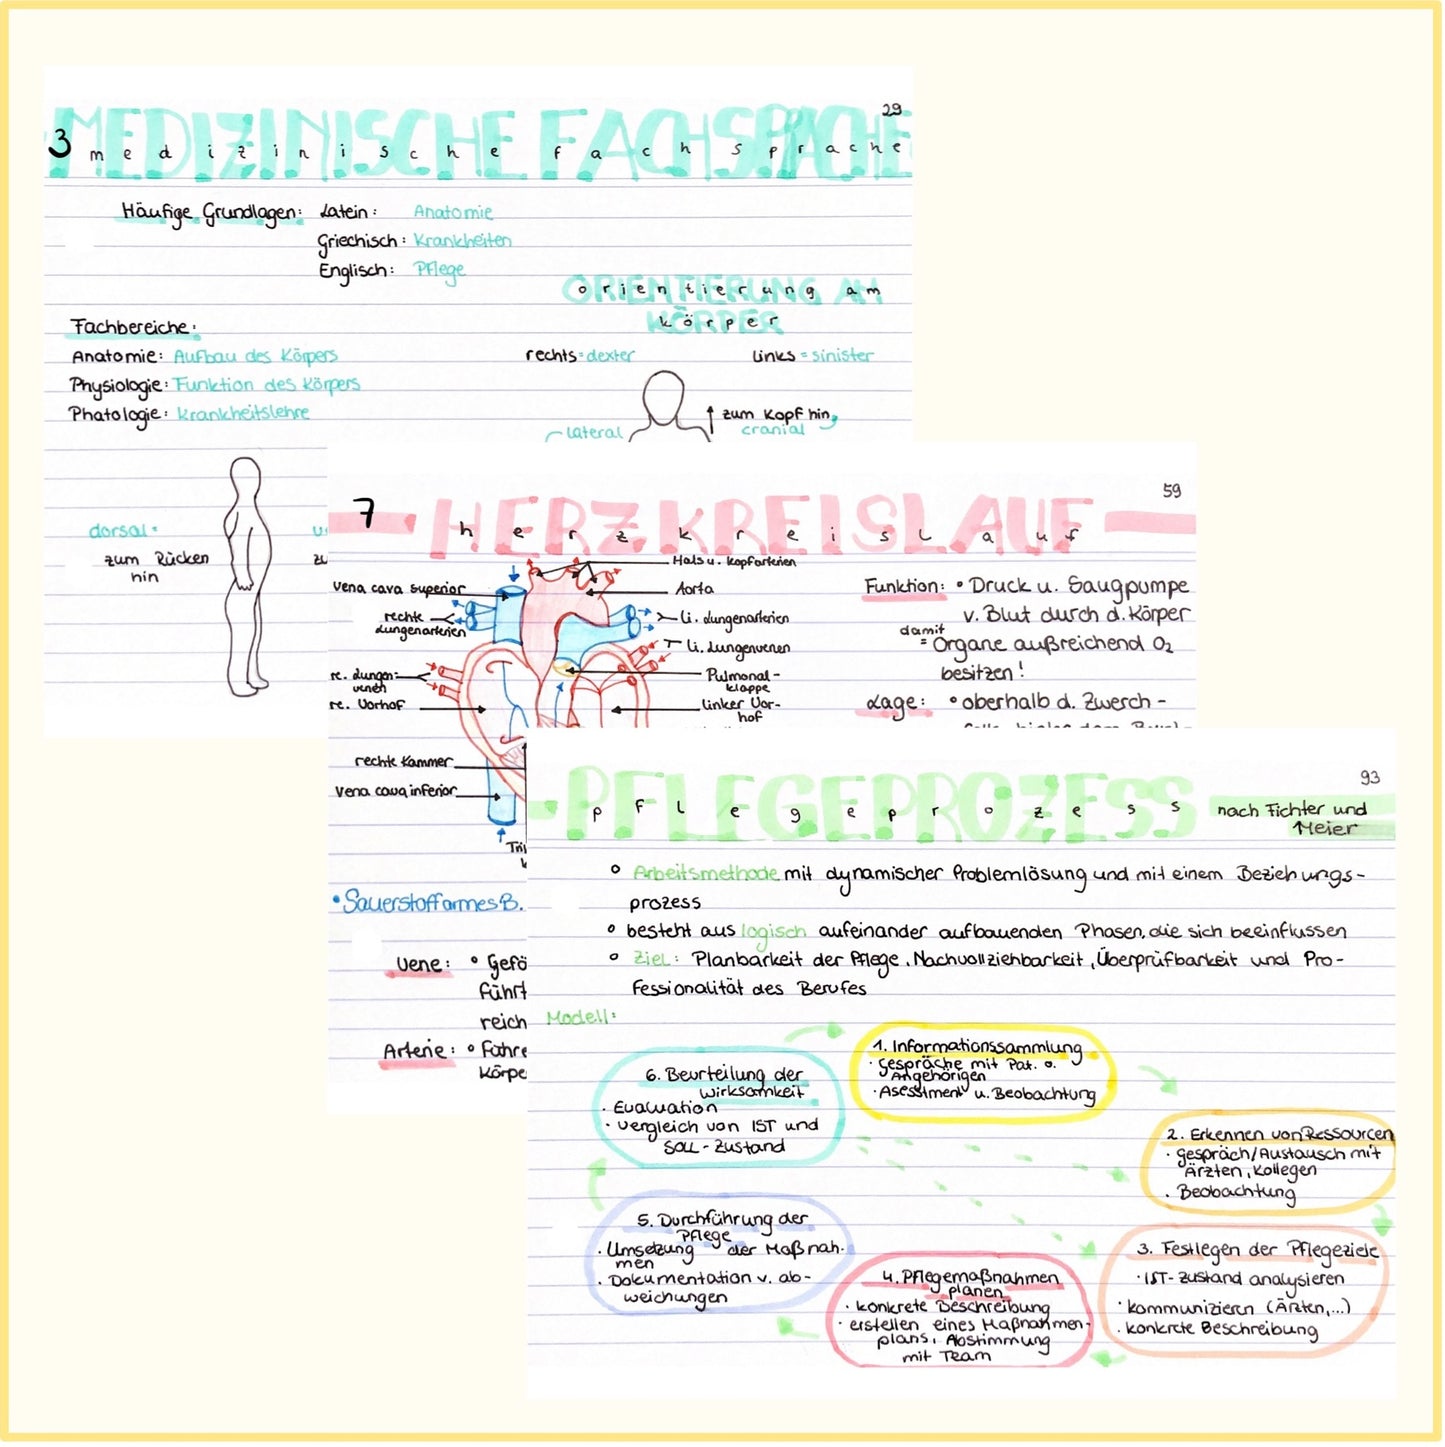 29
MEDIZINISCHE FACHSPRACHE
3 medizinische fachsprache
Häufige Grundlagen: Latein: Anatomie
Griechisch: Krankheiten
Englisch: Pflege
ORIENTIERUNG AM
orientierung am
KÖRPER
körper
Fachbereiche:
Anatomie: Aufbau des Körpers
Physiologie: Funktion des Körpers
Phatologie: Krankheitslehre
rechts = dexter
links = sinister
zum Kopf hin
cranial
lateral
dorsal =
zum Rücken
hin
59
HERZKREISLAUF
7 herzkreislauf
Hals u. Kopfarterien
Vena cava superior
Aorta
rechte
Lungenarterien
Li. Lungenarterien
Li. Lungenvenen
re. Lungen-
venen
Pulmonal-
klappe
re. Vorhof
linker Vor-
hof
rechte Kammer
Vena cava inferior
Funktion: • Druck u. Saugpumpe
v. Blut durch d. Körper
damit
= Organe außreichend O₂
besitzen!
Lage: • oberhalb d. Zwerch-
• Sauerstoffarmes B.
Vene: • Gefä
führt
reich
Arterie: • Führe
Körpe
93
PFLEGEPROZESS
pflegeprozess
nach Fichter und
Meier
• Arbeitsmethode mit dynamischer Problemlösung und mit einem Beziehungs-
prozess
• besteht aus logisch aufeinander aufbauenden Phasen, die sich beeinflussen
• Ziel: Planbarkeit der Pflege, Nachvollziehbarkeit, Überprüfbarkeit und Pro-
fessionalität des Berufes
Modell:
1. Informationssammlung
· Gespräche mit Pat. o.
Angehörigen
· Asessment u. Beobachtung
2. Erkennen von Ressourcen
· Gespräch/Austausch mit
Ärzten, Kollegen
· Beobachtung
3. Festlegen der Pflegeziele
· IST-Zustand analysieren
· kommunizieren (Ärzten,...)
· konkrete Beschreibung
4. Pflegemaßnahmen
planen
· konkrete Beschreibung
· erstellen eines Maßnahmen-
plans, Abstimmung
mit Team
5. Durchführung der
Pflege
· Umsetzung der Maßnah-
men
· Dokumentation v. ab-
weichungen
6. Beurteilung der
Wirksamkeit
· Evaluation
· Vergleich von IST und
SOLL-Zustand